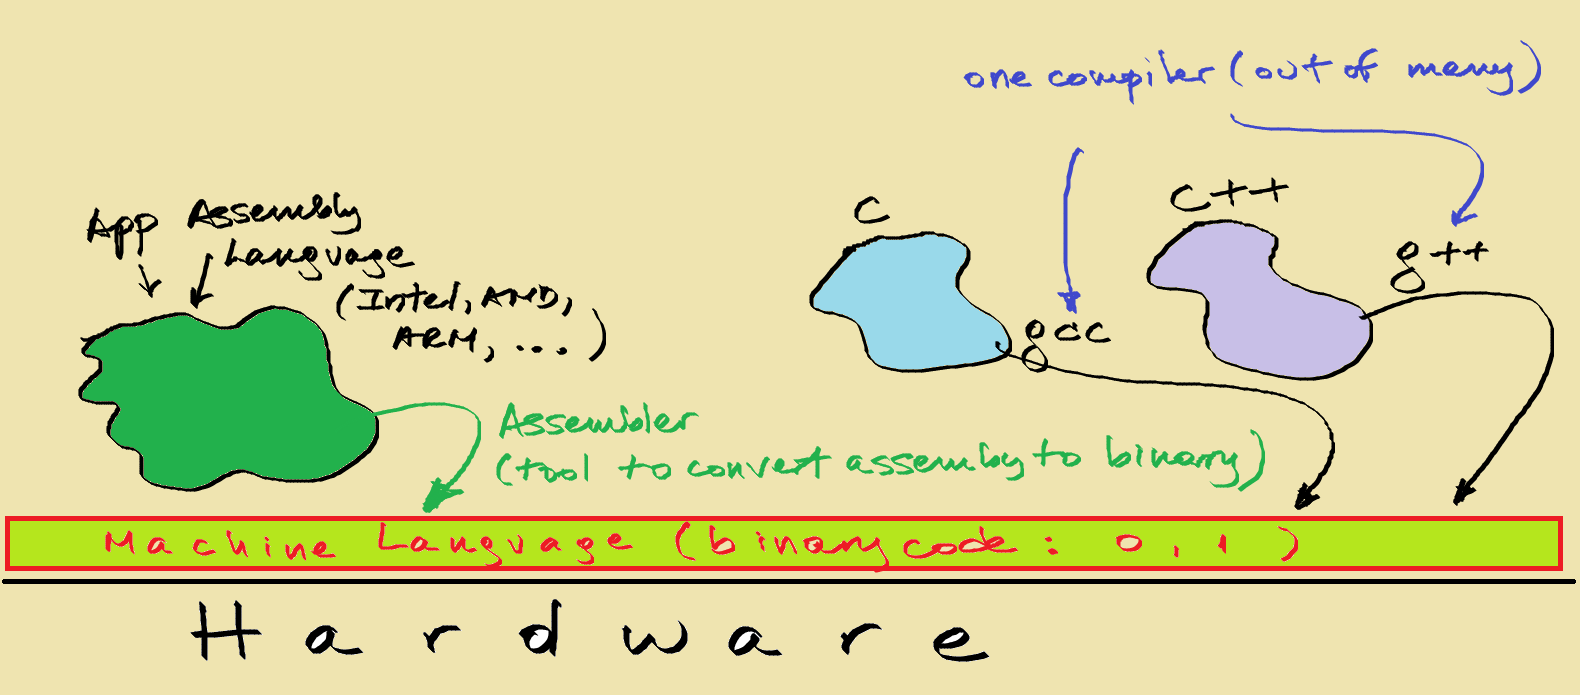 one compiler (out of many)
C
C++
App
Assembly
Language
(Intel, AMD,
ARM, ...)
gcc
g++
Assembler
(tool to convert assemby to binary)
Machine Language (binary code: 0, 1)
Hardware